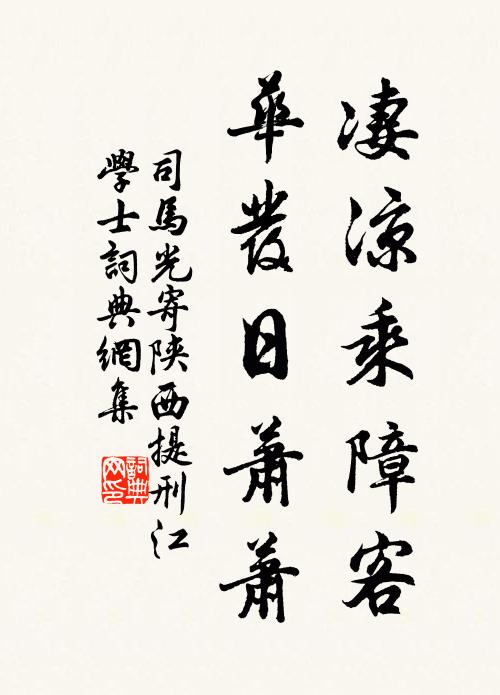 凄涼乘障客
華發日蕭蕭
司馬光寄陝西提刑江
學士詞典網集
詞典網印